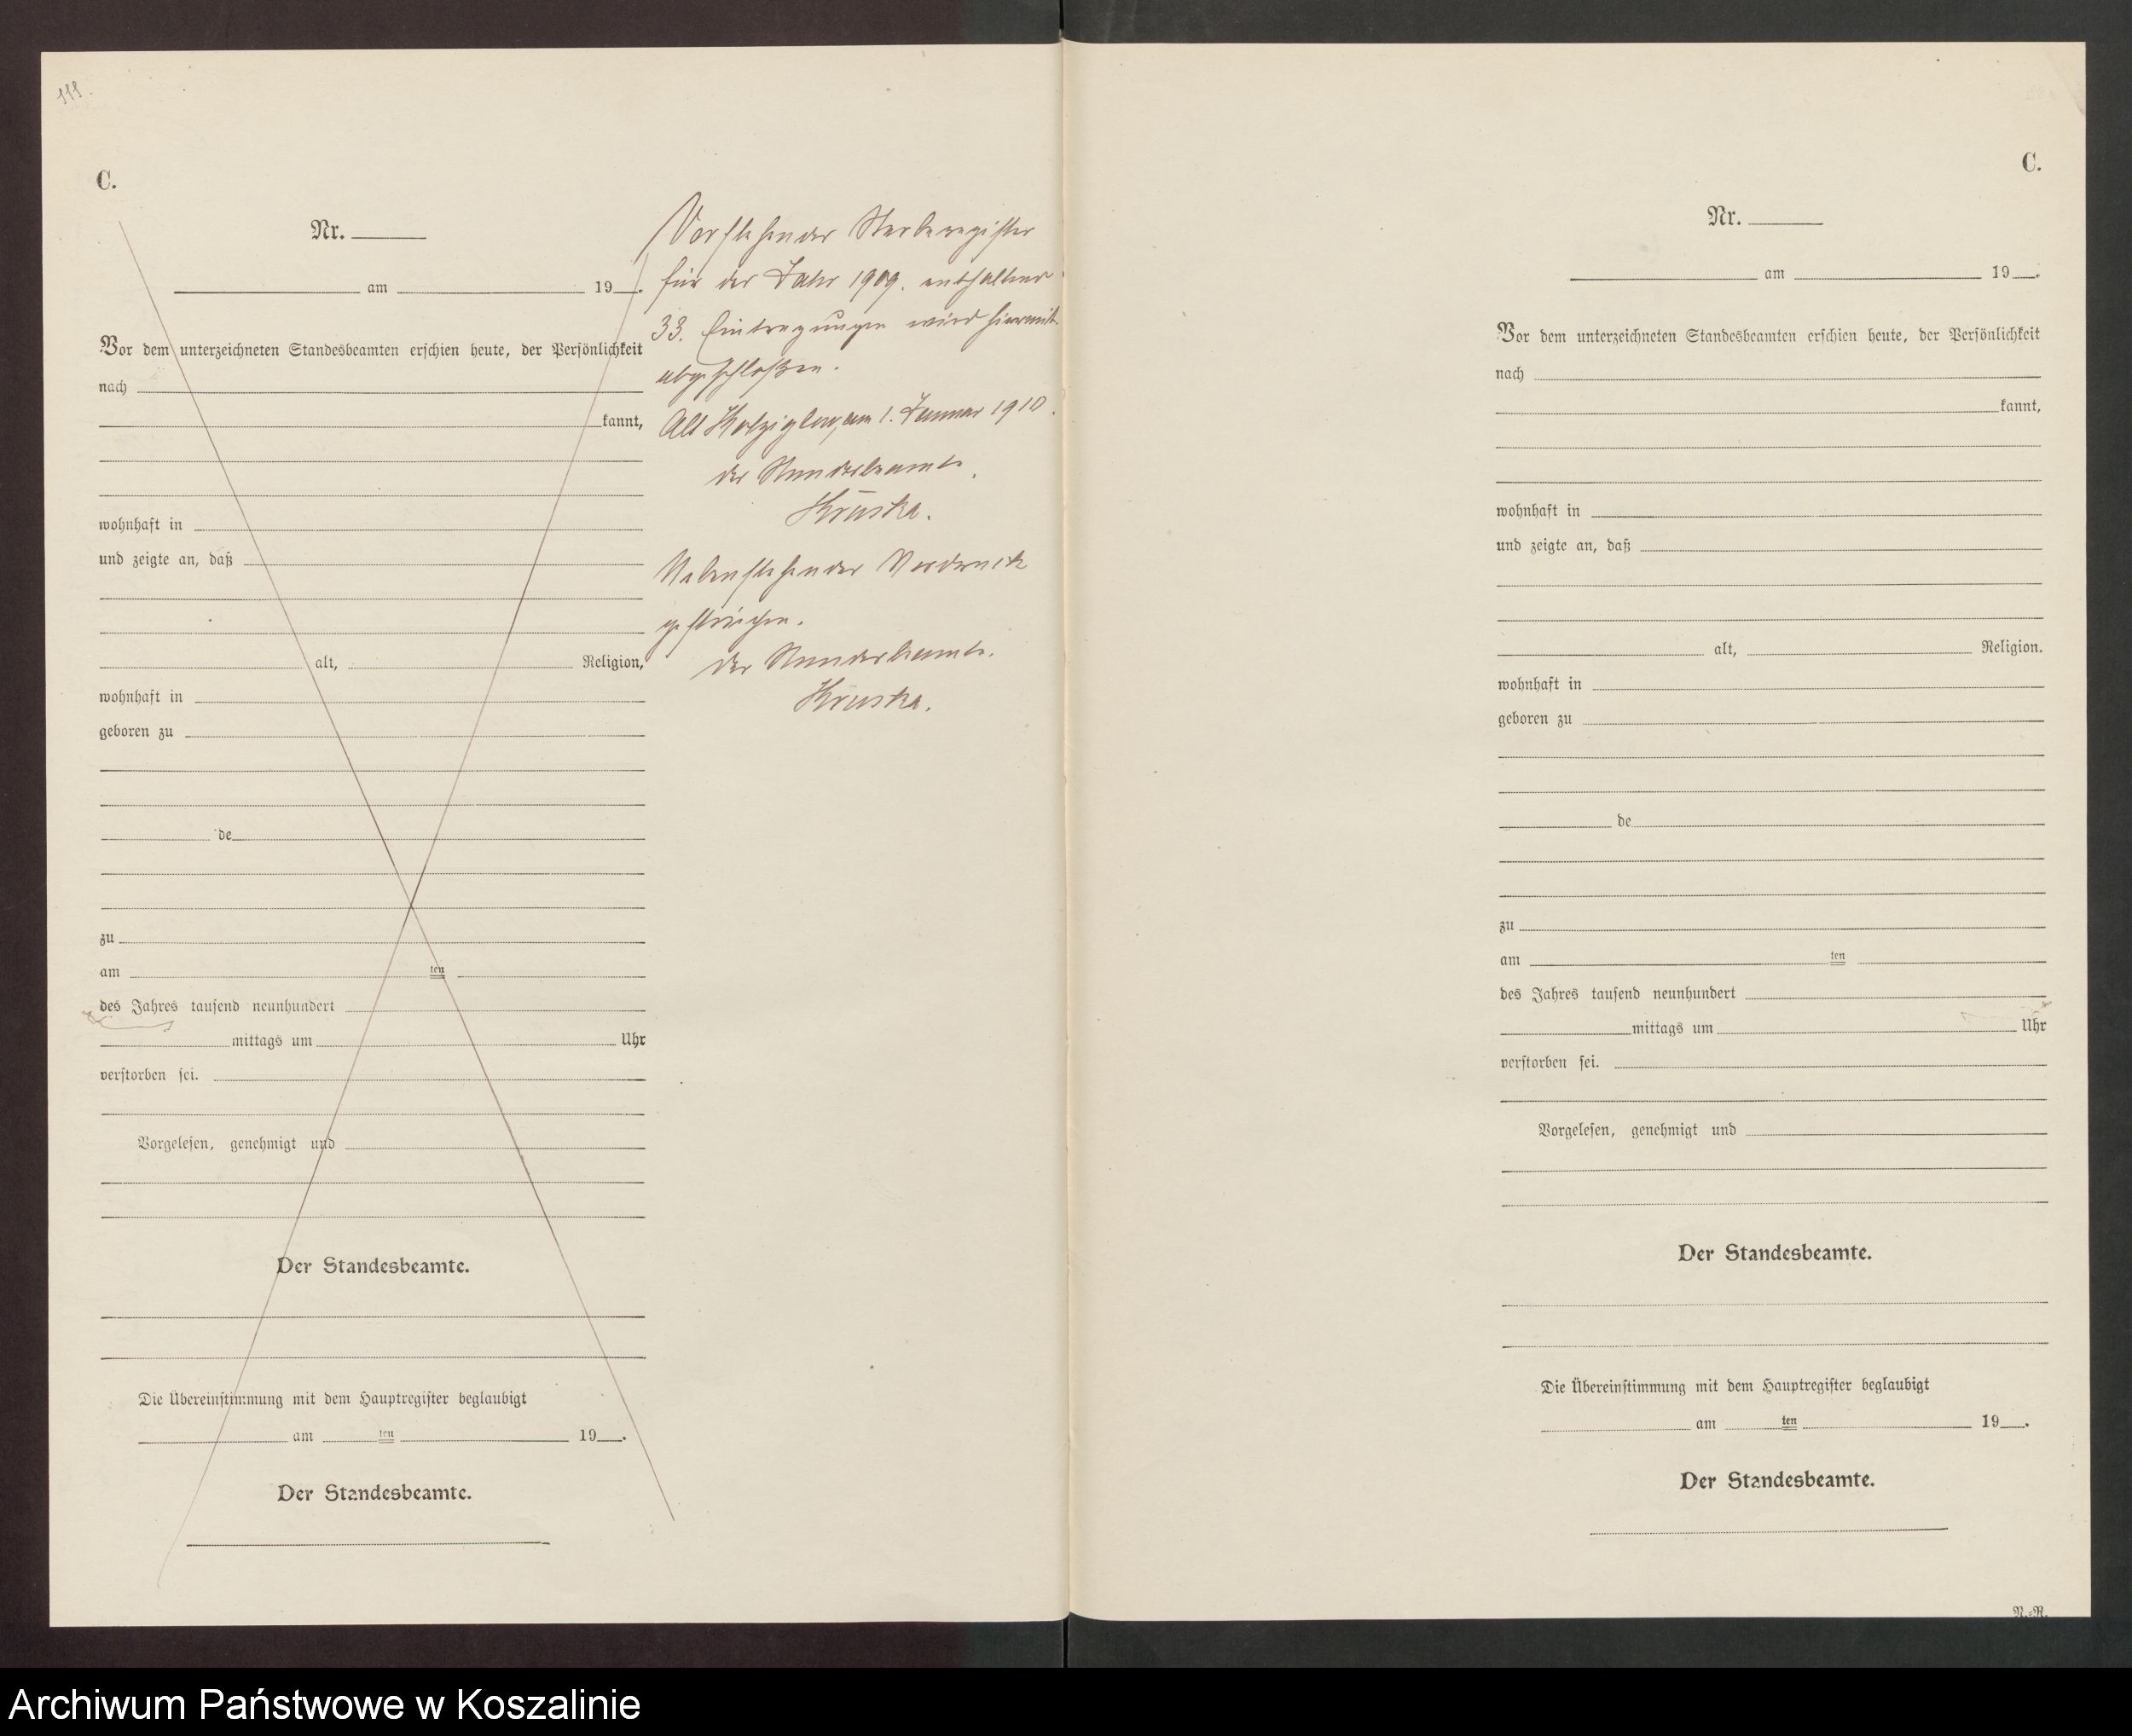 111.
C.
Nr.
am 19 .
Vor dem unterzeichneten Standesbeamten erschien heute, der Persönlichkeit
nach
kannt,
wohnhaft in
und zeigte an, daß
alt, Religion,
wohnhaft in
geboren zu
de
zu
am ten
des Jahres tausend neunhundert
mittags um Uhr
verstorben sei.
Vorgelesen, genehmigt und
Der Standesbeamte.
Die Übereinstimmung mit dem Hauptregister beglaubigt
am ten 19 .
Der Standesbeamte.
Vorstehender Sterberegister
für der Jahr 1909. enthaltend
33. Eintragungen wird hiermit
abgeschloßen.
Alt Kolziglow, am 1. Januar 1910.
der Standesbeamte.
Kruska.
Nebenstehender Vordruck
gestrichen.
der Standesbeamte.
Kruska.
C.
Nr.
am 19 .
Vor dem unterzeichneten Standesbeamten erschien heute, der Persönlichkeit
nach
kannt,
wohnhaft in
und zeigte an, daß
alt, Religion.
wohnhaft in
geboren zu
de
zu
am ten
des Jahres tausend neunhundert
mittags um Uhr
verstorben sei.
Vorgelesen, genehmigt und
Der Standesbeamte.
Die Übereinstimmung mit dem Hauptregister beglaubigt
am ten 19 .
Der Standesbeamte.
N.-R.
Archiwum Państwowe w Koszalinie